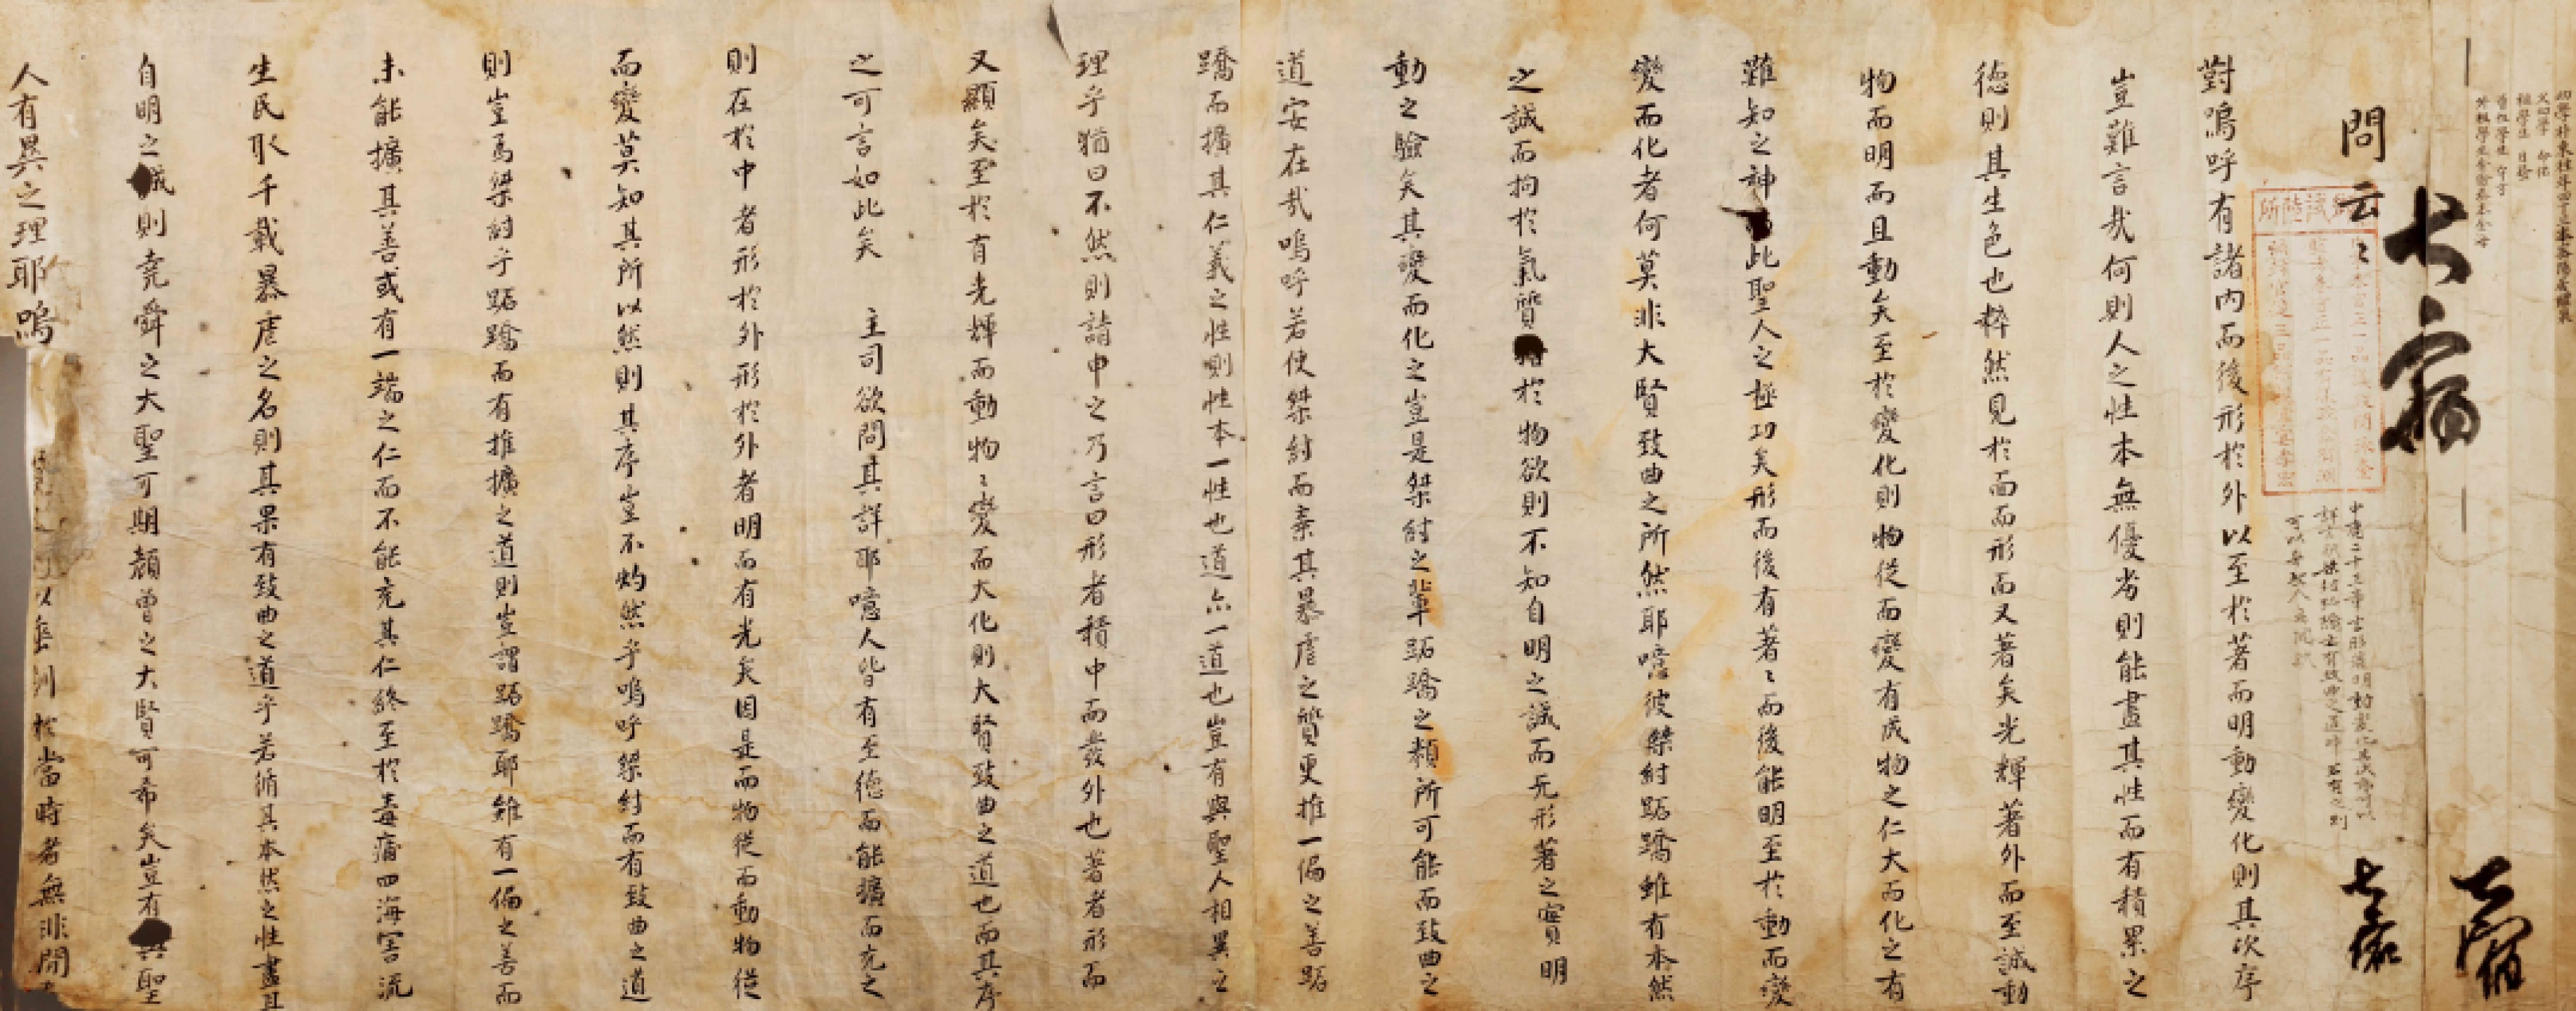 問云〻
對嗚呼有諸內而後形於外以至於著而明動變化則其次序
豈難言哉何則人之性本無優劣則能盡其性而有積累之
德則其生色也粹然見於面而形而又著矣光輝著外而至誠動
物而明而且動矣至於變化則物從而變有成物之仁大而化之有
難知之神此聖人之極功矣形而後有著〻而後能明至於動而變
變而化者何莫非大賢致曲之所然耶噫彼桀紂跖蹻雖有本然
之誠而拘於氣質於物欲則不知自明之誠而无形著之實明
動之驗矣其變而化之豈是桀紂之輩跖蹻之類所可能而致曲之
道安在哉嗚呼若使桀紂而棄其暴虐之質更推一偏之善跖
蹻而擴其仁義之性則性本一性也道亦一道也豈有與聖人相異之
理乎猶曰不然則請申之乃言曰形者積中而發外也著者形而
又顯矣至於有光輝而動物〻變而大化則大賢致曲之道也而其序
之可言如此矣 主司欲問其詳耶噫人皆有至德而能擴而充之
則在於中者形於外形於外者明而有光矣因是而物從而動物從
而變莫知其所以然則其序豈不灼然乎嗚呼桀紂而有致曲之道
則豈爲桀紂乎跖蹻而有推擴之道則豈謂跖蹻耶雖有一偏之善而
未能擴其善或有一端之仁而不能充其仁終至於毒痡四海害流
生民取千載暴虐之名則其果有致曲之道乎若循其本然之性盡其
自明之誠則堯舜之大聖可期顏曾之大賢可希矣豈有與聖
人有異之理耶嗚
於當時者無非